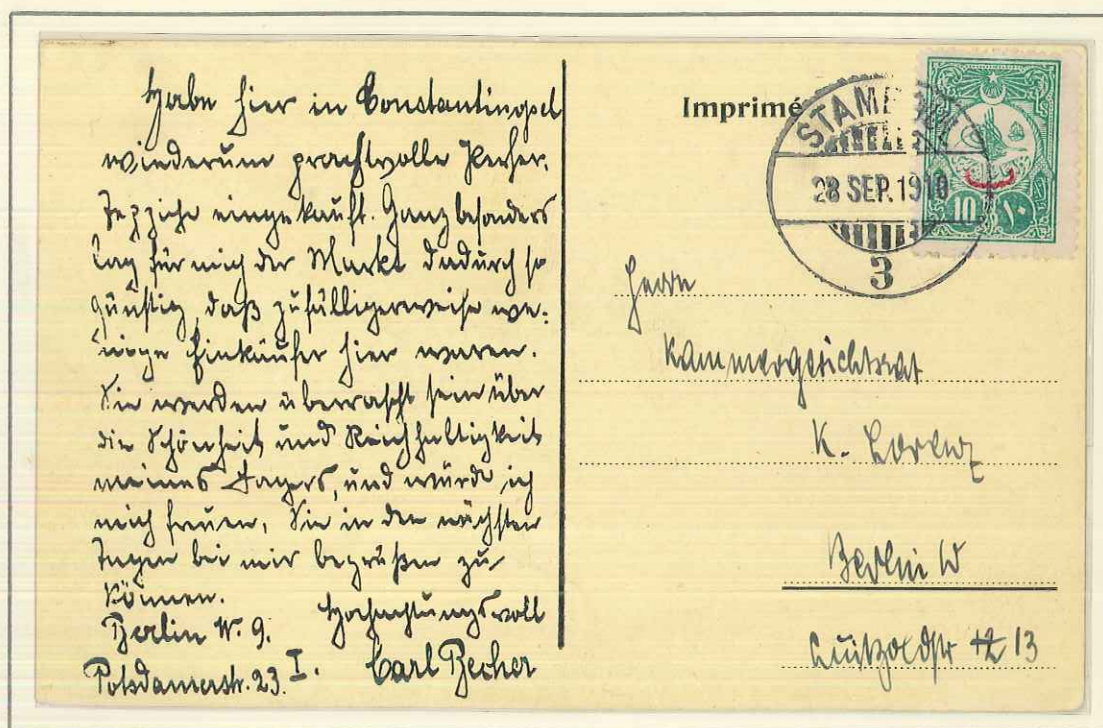 Habe hier in Constantinopel
wiederum prachtvolle Perser-
Teppiche eingekauft. Ganz besonders
lag für mich der Markt dadurch so
günstig, daß zufälligerweise we-
nige Einkäufer hier waren.
Sie werden überrascht sein über
die Schönheit und Reichhaltigkeit
meines Lagers, und würde ich
mich freuen, Sie in den nächsten
Tagen bei mir begrüßen zu
können.
Hochachtungsvoll
Berlin W. 9.
Potsdamerstr. 23. I.
Carl Becher
Imprimé
STAMBOUL
28 SEP. 1910
3
10 ١٠
Herrn
Kammergerichtsrat
K. Lorenz
Berlin W
Luitpoldstr 12 13